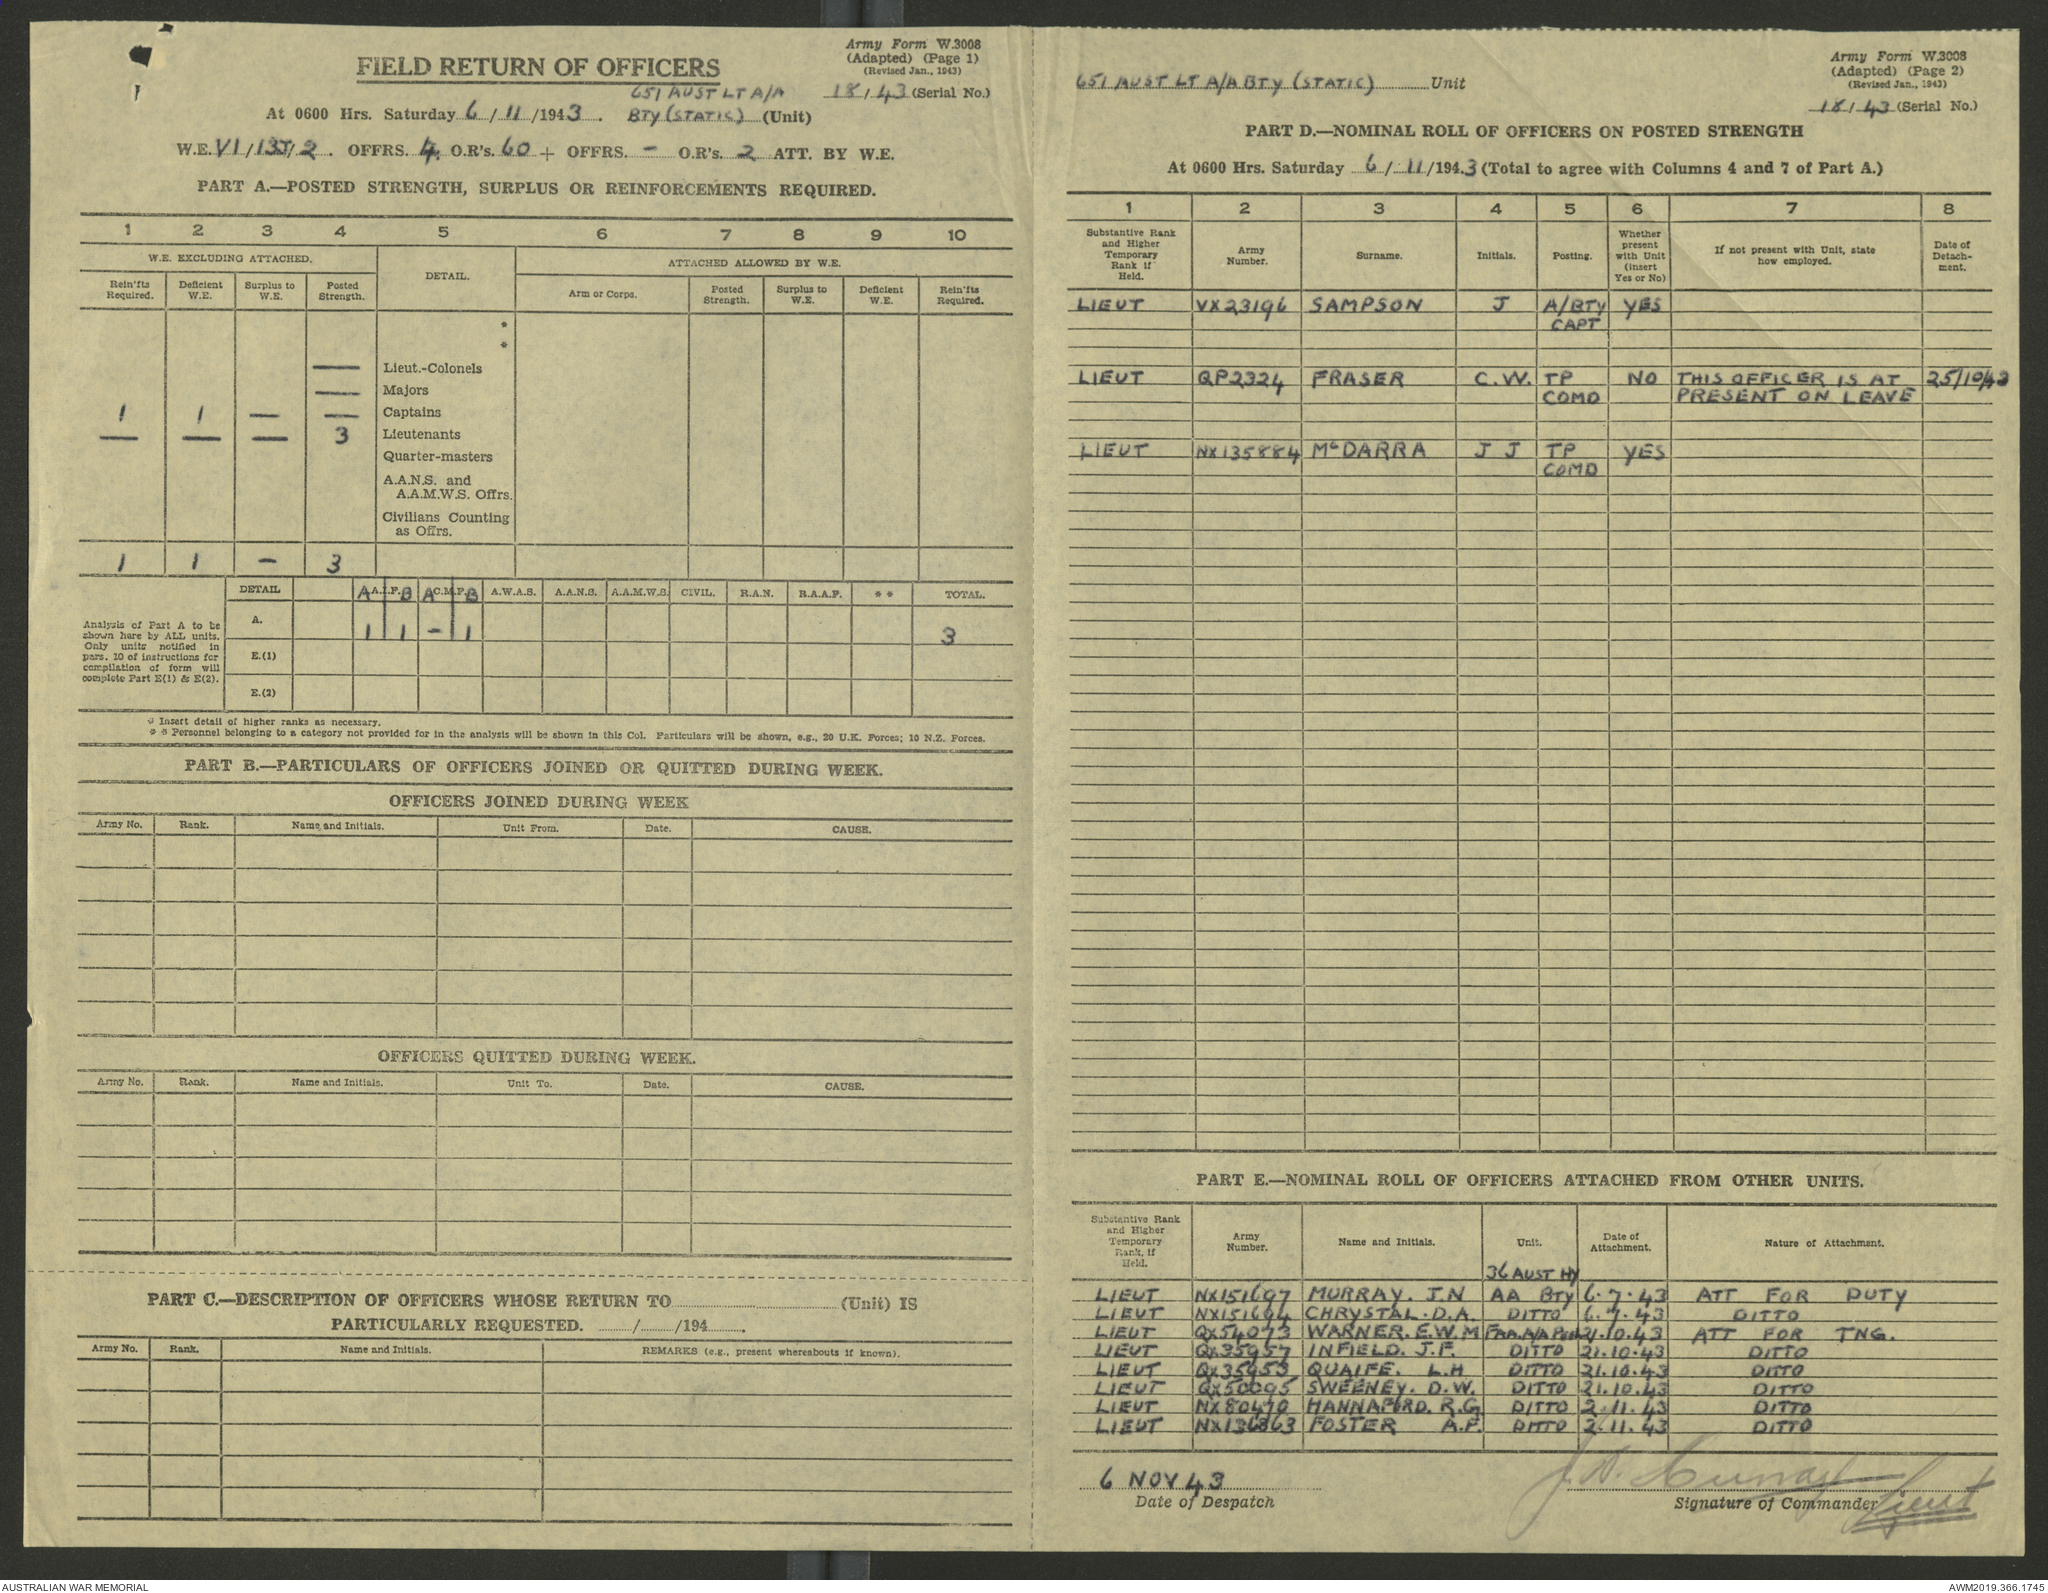 Army Form W.3008
(Adapted) (Page 1)
(Revised Jan., 1943)
FIELD RETURN OF OFFICERS
651 AUST LT A/A 18/43 (Serial No.)
At 0600 Hrs. Saturday 6/11/1943. BTY (STATIC) (Unit)
W.E. VI/13J/2. OFFRS. 4. O.R's. 60 + OFFRS. - O.R's. 2 ATT. BY W.E.
PART A.—POSTED STRENGTH, SURPLUS OR REINFORCEMENTS REQUIRED.
1 2 3 4 5 6 7 8 9 10
W.E. EXCLUDING ATTACHED. DETAIL. ATTACHED ALLOWED BY W.E.
Rein'fts Required. Deficient W.E. Surplus to W.E. Posted Strength. Arm or Corps. Posted Strength. Surplus to W.E. Deficient W.E. Rein'fts Required.
*
*
— Lieut.-Colonels
— Majors
1 1 — — Captains
— — — 3 Lieutenants
Quarter-masters
A.A.N.S. and
A.A.M.W.S. Offrs.
Civilians Counting
as Offrs.
1 1 - 3
DETAIL A A.I.F. B A C.M.F. B A.W.A.S. A.A.N.S. A.A.M.W.S. CIVIL. R.A.N. R.A.A.F. * * TOTAL.
Analysis of Part A to be
shown here by ALL units.
Only units notified in
pars. 10 of instructions for
compilation of form will
complete Part E(1) & E(2).
A. 1 1 - 1 3
E.(1)
E.(2)
* Insert detail of higher ranks as necessary.
* * Personnel belonging to a category not provided for in the analysis will be shown in this Col. Particulars will be shown, e.g., 20 U.K. Forces; 10 N.Z. Forces.
PART B.—PARTICULARS OF OFFICERS JOINED OR QUITTED DURING WEEK.
OFFICERS JOINED DURING WEEK
Army No. Rank. Name and Initials. Unit From. Date. CAUSE.
OFFICERS QUITTED DURING WEEK.
Army No. Rank. Name and Initials. Unit To. Date. CAUSE.
PART C.—DESCRIPTION OF OFFICERS WHOSE RETURN TO (Unit) IS
PARTICULARLY REQUESTED. / /194 .
Army No. Rank. Name and Initials. REMARKS (e.g., present whereabouts if known).
Army Form W.3008
(Adapted) (Page 2)
(Revised Jan., 1943)
651 AUST LT A/A BTY (STATIC) Unit
18/43 (Serial No.)
PART D.—NOMINAL ROLL OF OFFICERS ON POSTED STRENGTH
At 0600 Hrs. Saturday 6/11/1943 (Total to agree with Columns 4 and 7 of Part A.)
1 2 3 4 5 6 7 8
Substantive Rank and Higher Temporary Rank if Held. Army Number. Surname. Initials. Posting. Whether present with Unit (insert Yes or No) If not present with Unit, state how employed. Date of Detachment.
LIEUT VX23196 SAMPSON J A/BTY YES
CAPT
LIEUT QP2324 FRASER C.W. TP NO THIS OFFICER IS AT 25/10/43
COMD PRESENT ON LEAVE
LIEUT NX135884 McDARRA J J TP YES
COMD
PART E.—NOMINAL ROLL OF OFFICERS ATTACHED FROM OTHER UNITS.
Substantive Rank and Higher Temporary Rank, if Held. Army Number. Name and Initials. Unit. Date of Attachment. Nature of Attachment.
36 AUST HY
LIEUT NX151697 MURRAY. J.N AA BTY 6.7.43 ATT FOR DUTY
LIEUT NX151694 CHRYSTAL. D.A. DITTO 6.7.43 DITTO
LIEUT QX54073 WARNER. E.W.M 21.10.43 ATT FOR TNG.
LIEUT QX35957 INFIELD. J.F. DITTO 21.10.43 DITTO
LIEUT QX35953 QUAIFE. L.H DITTO 21.10.43 DITTO
LIEUT QX50095 SWEENEY. D.W. DITTO 21.10.43 DITTO
LIEUT NX80470 HANNAFORD. R.G DITTO 2.11.43 DITTO
LIEUT NX136863 FOSTER A.F. DITTO 2.11.43 DITTO
6 NOV 43
Date of Despatch
J.N. Murray Lieut
Signature of Commander
AUSTRALIAN WAR MEMORIAL
AWM2019.366.1745